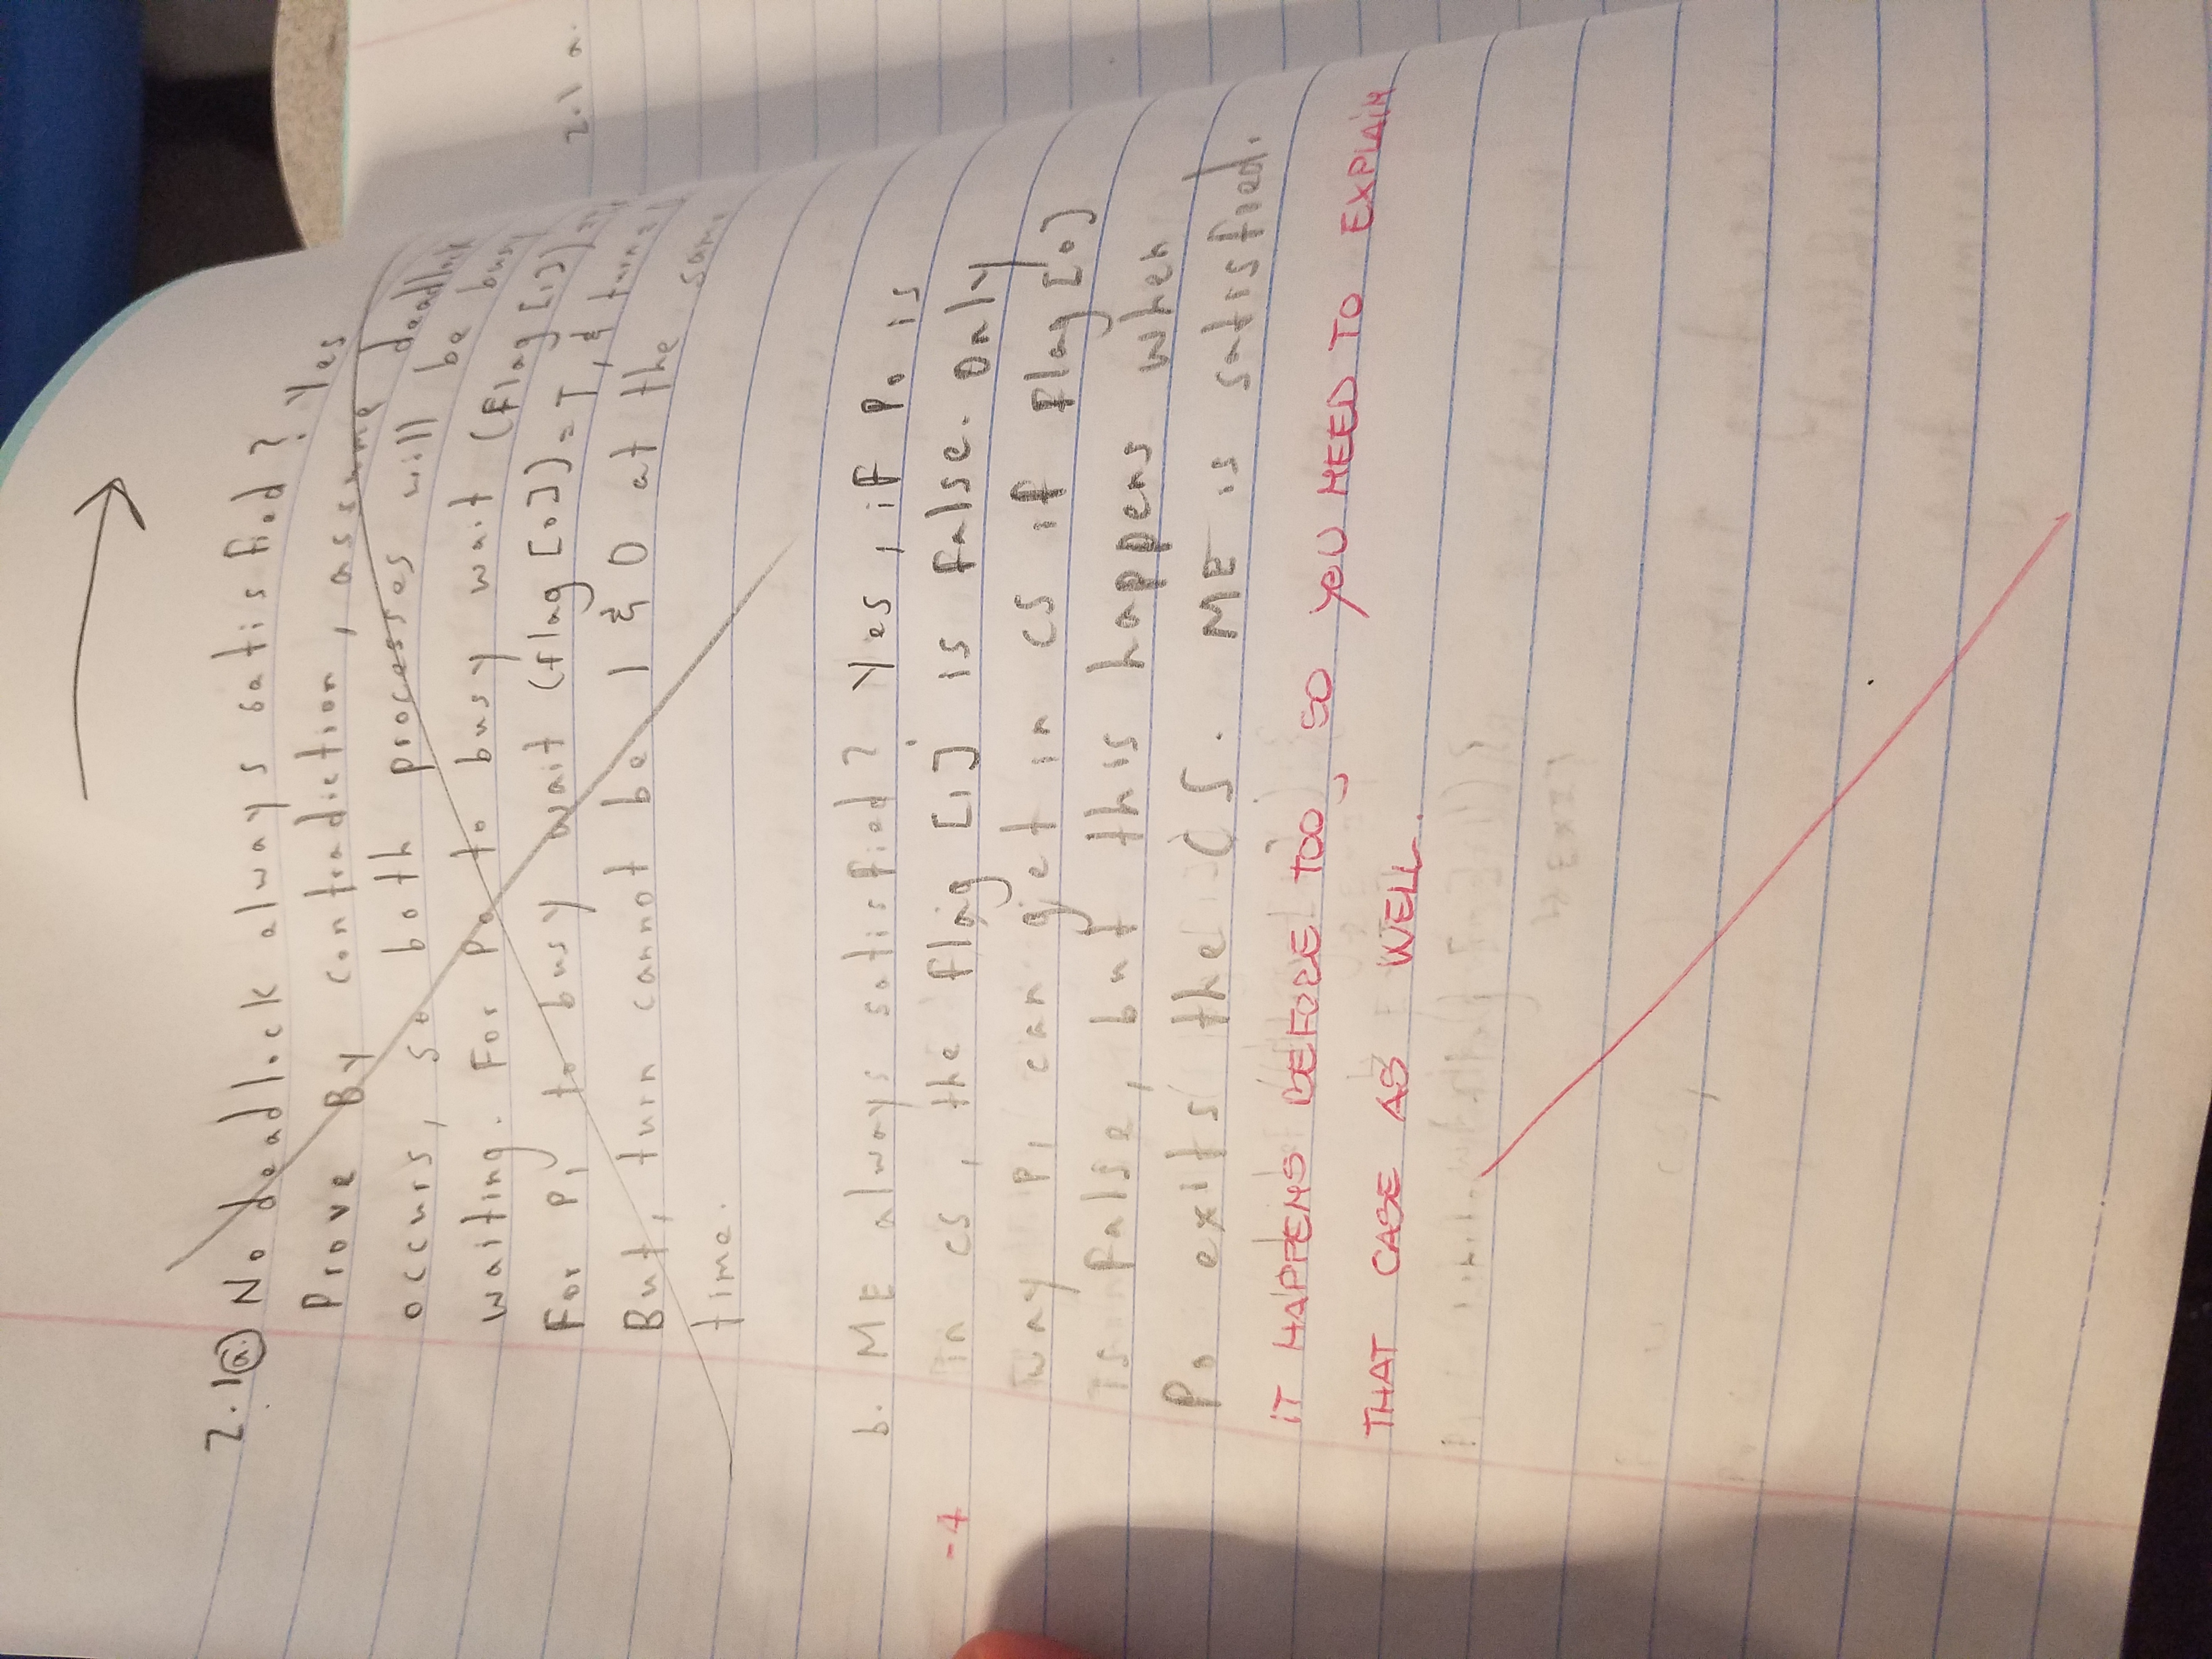 2.1 a. No deadlock always satisfied? Yes
Prove By contradiction, assume deadlock
occurs, so both processes will be busy
waiting. For P0 to busy wait (flag [1])=
For P1 to busy wait (flag [0])=T, & turn=1
But, turn cannot be 1 & 0 at the same
time.
b. ME always satisfied? Yes, if P0 is
-4 in CS, the flag [1] is false. Only
way P1 can get in CS if flag [0]
is false, but this happens when
P0 exits the CS. ME is satisfied.
IT HAPPENS BEFORE TOO, SO YOU NEED TO EXPLAIN
THAT CASE AS WELL.
2.1 a.